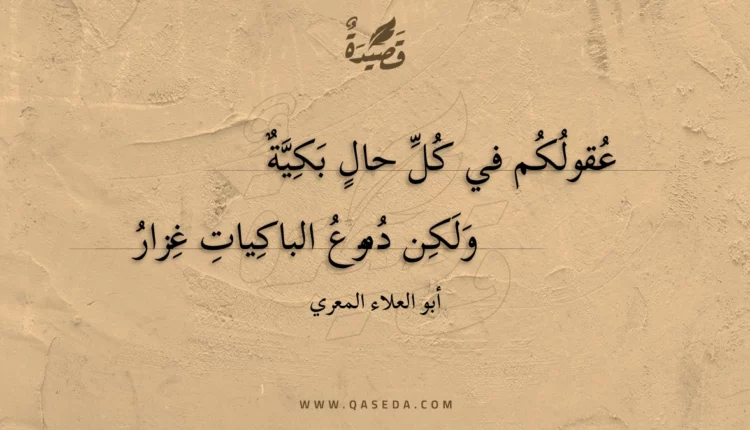 قَصِيدَةٌ
عُقولُكُم في كُلِّ حالٍ بَكِيَّةٌ
وَلَكِن دُموعُ الباكِياتِ غِزارُ
أبو العلاء المعري
WWW.QASEDA.COM